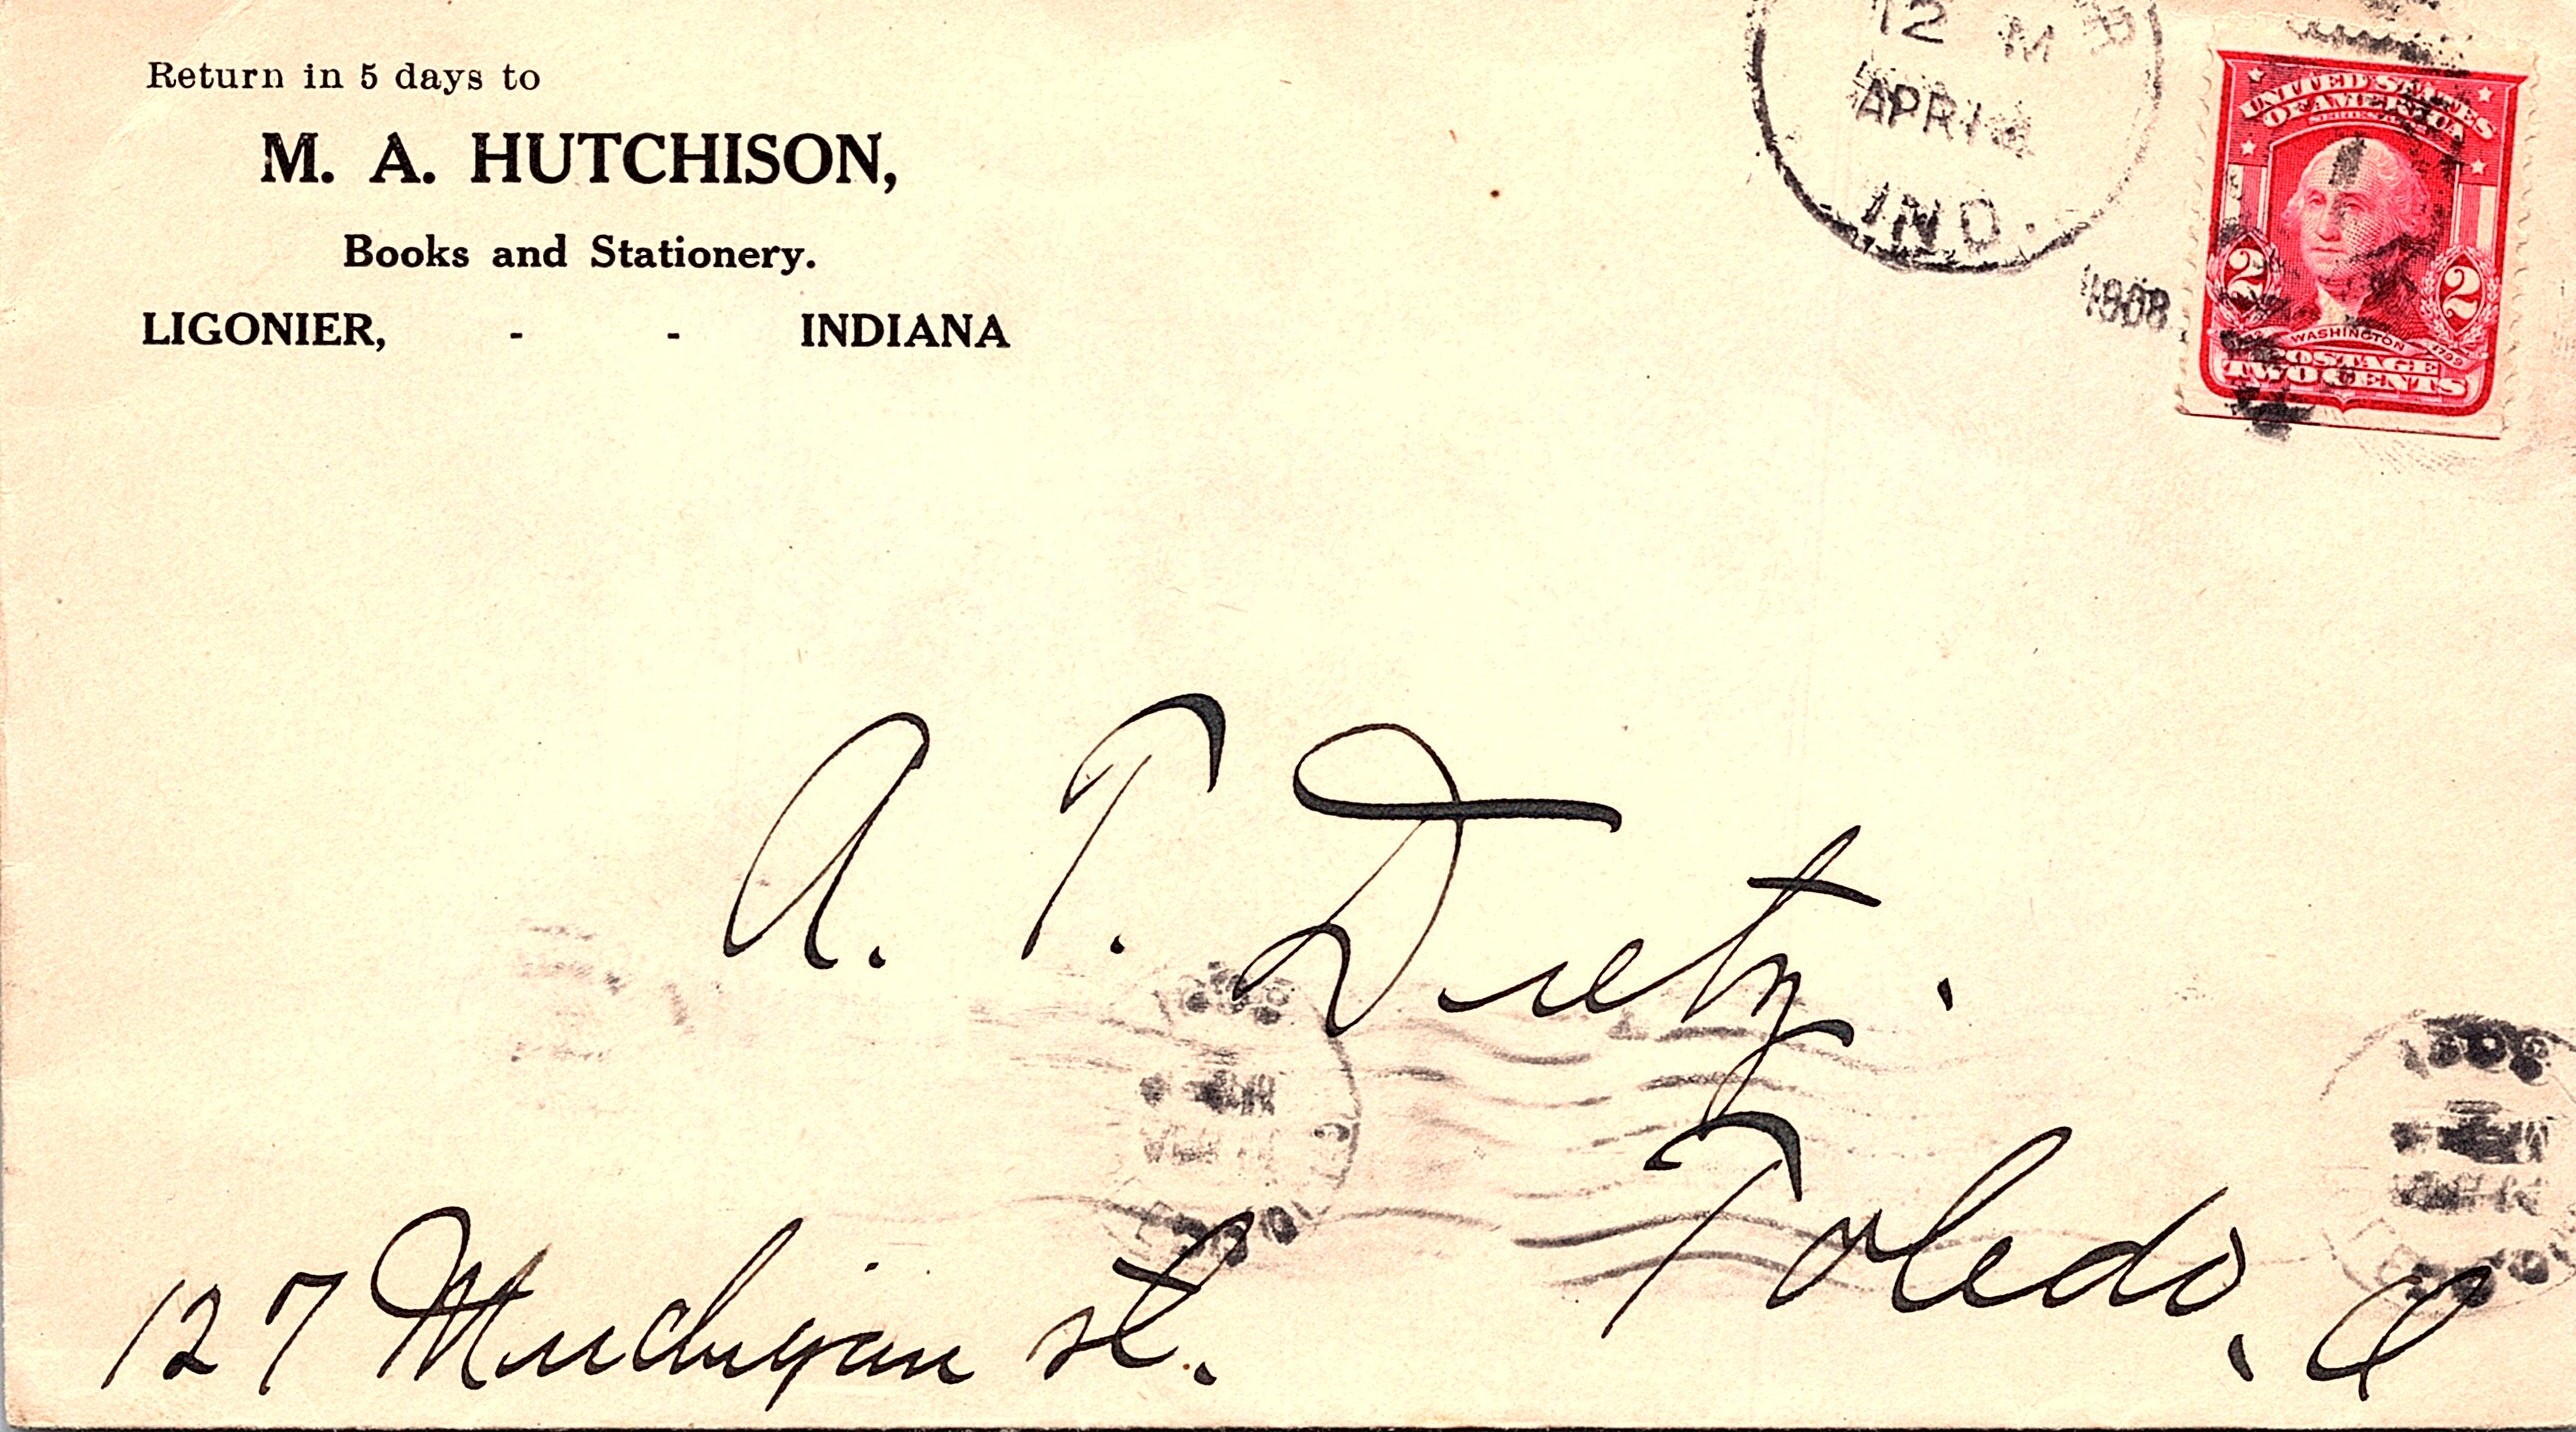 Return in 5 days to
M. A. HUTCHISON,
Books and Stationery.
LIGONIER, - - INDIANA
12 M
APR
IND.
1908
UNITED STATES
OF AMERICA
2 2
WASHINGTON
1799
POSTAGE
TWO CENTS
A. T. Dietz.
Toledo, O
127 Michigan St.